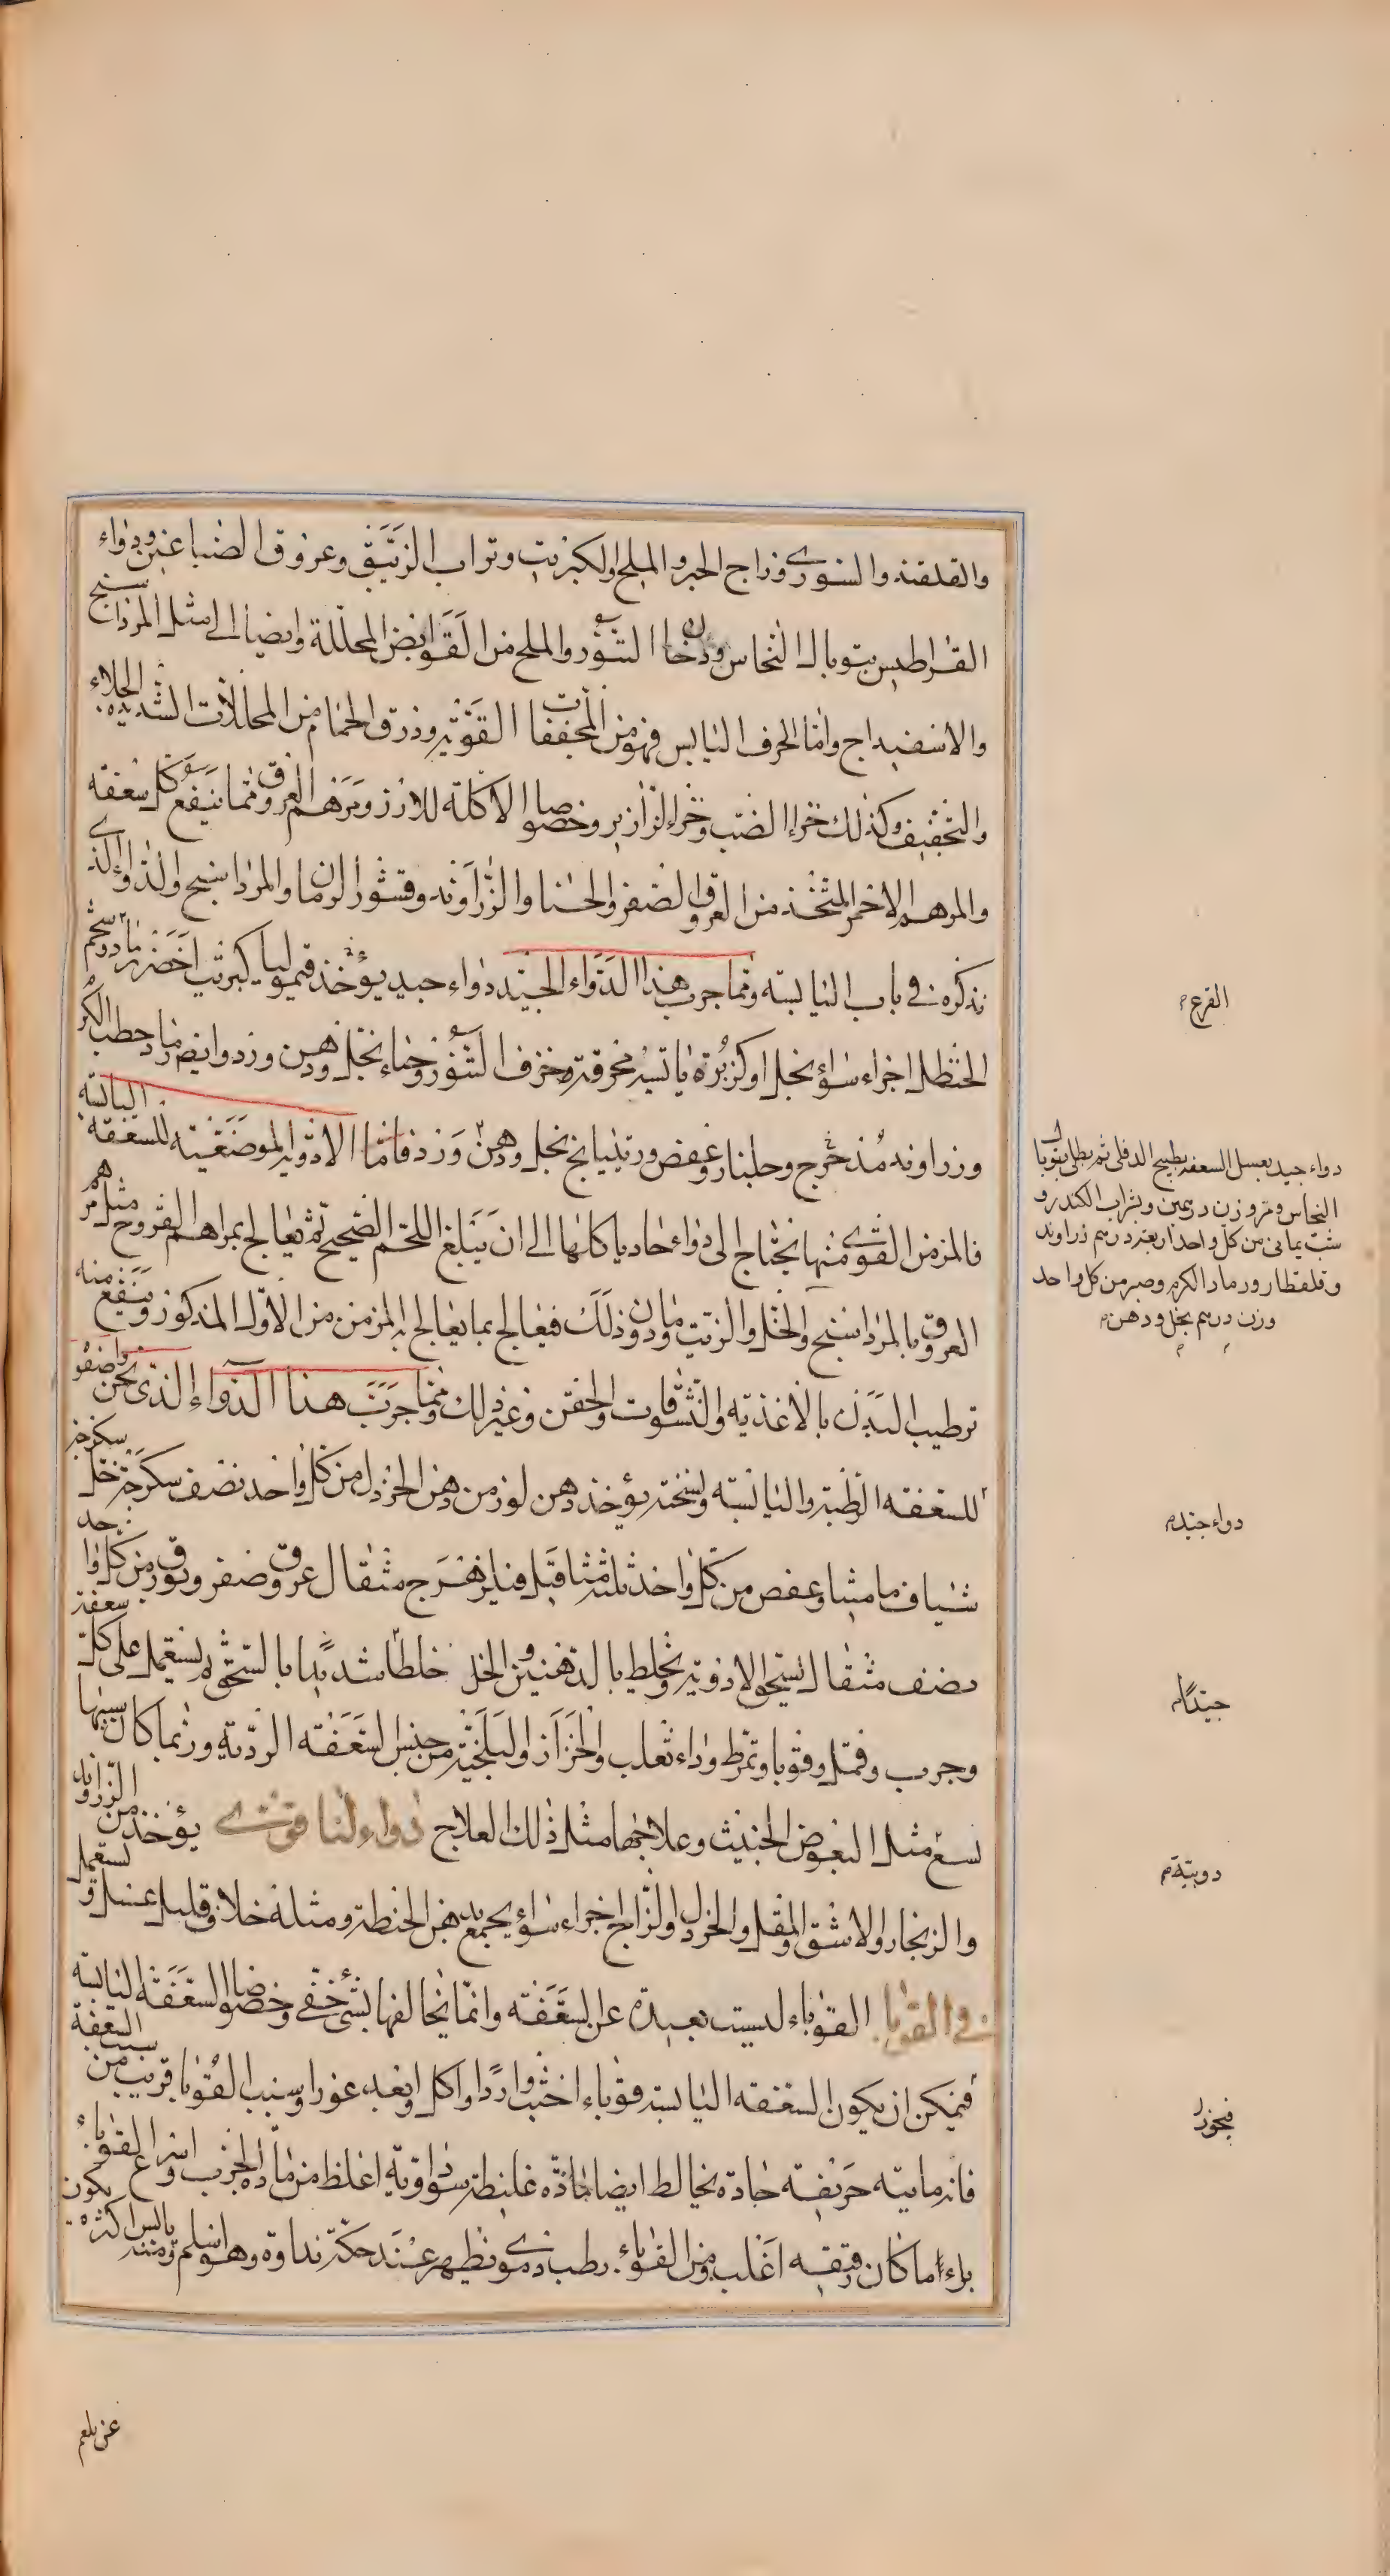 والقلقند والسوري وزاج الحبر والملح والكبريت وتراب الزئبق وعروق الصباغين ودواء
القراطيس وتوبال النحاس ودخان التنور والملح من القوابض المحللة وايضا الى مثل المرداسنج
والاسفيداج واما الحرف اليابس فهو من المجففات القوية وذرق الحمام من المحللات الشديدة الجلاء
والتجفيف وكذلك خراء الضب وخراء الزرازير وخصوصا الاكلة للارز ومرهم العروق مما ينفع كل سعفه
والمرهم الاحمر المتخذ من العروق الصفر والحنا والزراوند وقشور الرمان والمرداسنج والدواء الذي
نذكره في باب اليابسه ومما جرب هذا الدواء الجيد دواء جيد يؤخذ قيموليا كبريت اخضر رماد وشحم
الحنظل اجزاء سواء بخل او كزبرة يابسة محرقة وخزف التنور وحناء بخل ودهن ورد وايضا رماد حطب الكرم
وزراوند مدحرج وجلنار وعفص وراتينانج بخل ودهن ورد فاما الادوية الموضعيه للسعفه اليابسه
فالمزمن القوي منها يحتاج الى دواء حاد ياكلها الى ان يبلغ اللحم الصحيح ثم يعالج بمراهم القروح مثل مرهم
العروق بالمرداسنج والخل والزيت وما دون ذلك فيعالج بما يعالج به المزمن من الاول المذكور وينفع منه
ترطيب البدن بالاغذيه والنشوقات والحقن وغير ذلك ومما جربت هذا الدواء الذي نحن واصفو
للسعفه الرطبة واليابسه ونسخته يؤخذ دهن لوز من دهن الخردل من كل واحد نصف سكرجة خل سكرجة
شياف ماميثا وعفص من كل واحد ثلثة مثاقيل فيلزهرج مثقال عروق صفر وبورق من كل واحد
نصف مثقال تسحق الادوية وتخلط بالدهنين والخل خلطا شديدا بالسحق ويستعمل على كل سعفة
وجرب وقمل وقوبا وتمرط وداء ثعلب والحزاز والبلخية من جنس السعفه الرديه وربما كان سببها
لسع مثل البعوض الخبيث وعلاجها مثل ذلك العلاج دواء لنا قوي يؤخذ من الزراوند
والزنجار والاشق والمقل والخردل والزاج اجزاء سواء يجمع بدهن الحنطة ومثله خلا وقليل عسل ويستعمل
في القوبا القوباء ليست بعيدة عن السعفه وانما يخالفها بشئ خفي وخصوصا السعفه اليابسة
فيمكن ان يكون السعفه اليابسة قوباء اخبث واردا واكل وابعد غورا وسبب القوبا قريب من سبب السعفة
فانه مائيه حريفه حادة يخالط ايضا مادة غليظة سوداوية اغلظ من مادة الجرب واسرع القوباء
برءا ما كان رقيقه اغلب ومن القوباء رطب دموي يظهر عند حكة نداوة وهو اسلم ومنه يابس اكثره يكون
عن بلغم
القرع
دواء جيد يغسل السعفه بطبيخ الدفلى ثم يطلى بتوبال
النحاس ومر وزن درهمين وبتراب الكندر و
شب يماني من كل واحد اربعة دراهم زراوند
وقلقطار ورماد الكرم وصبر من كل واحد
وزن درهم بخل ودهن
دواء جيد
جيدا